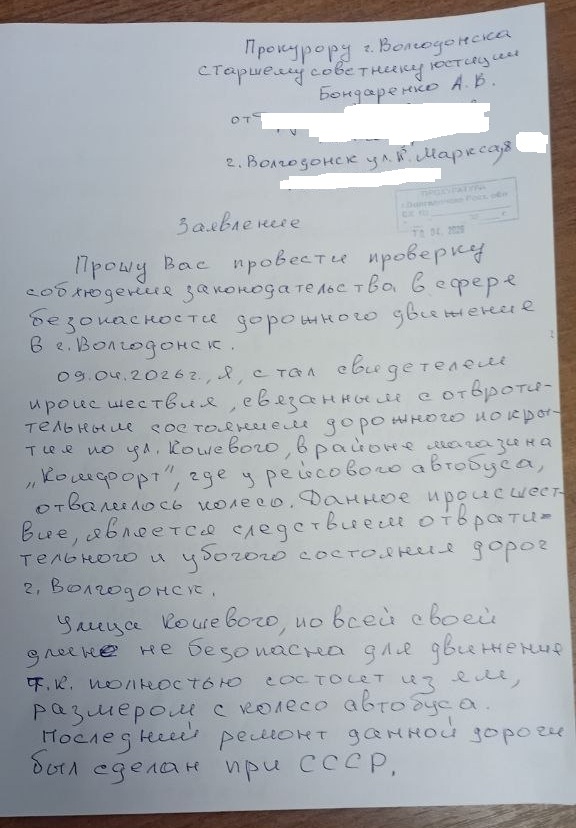 Прокурору г. Волгодонска
старшему советнику юстиции
Бондаренко А. В.
от
г. Волгодонск ул. К. Маркса, 8
ПРОКУРАТУРА
Заявление
Прошу Вас провести проверку
соблюдения законодательства в сфере
безопасности дорожного движение
В г. Волгодонск.
09.04.2026г., я, стал свидетелем
происшествия, связанным с отврати-
тельным состоянием дорожного покры-
тия по ул. Кошевого, в районе магазина
„Комфорт", где у рейсового автобуса,
отвалилось колесо. Данное происшест-
вие, является следствием отврати-
тельного и убогого состояния дорог
г. Волгодонск.
Улица Кошевого, по всей своей
длине не безопасна для движение
т.к. полностью состоит из ям,
размером с колесо автобуса.
Последний ремонт данной дороги
был сделан при СССР.